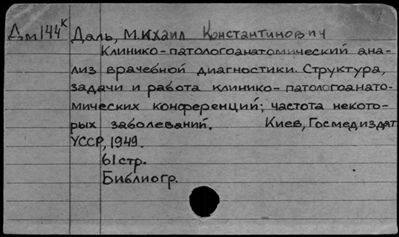 Дм144к Даль, Михаил Константинович
Клинико-патологоанатомический ана-
лиз врачебной диагностики. Структура,
задачи и работа клинико-патологоанато-
мических конференций; частота некото-
рых заболеваний. Киев, Госмедиздат
УССР, 1949.
61 стр.
Библиогр.